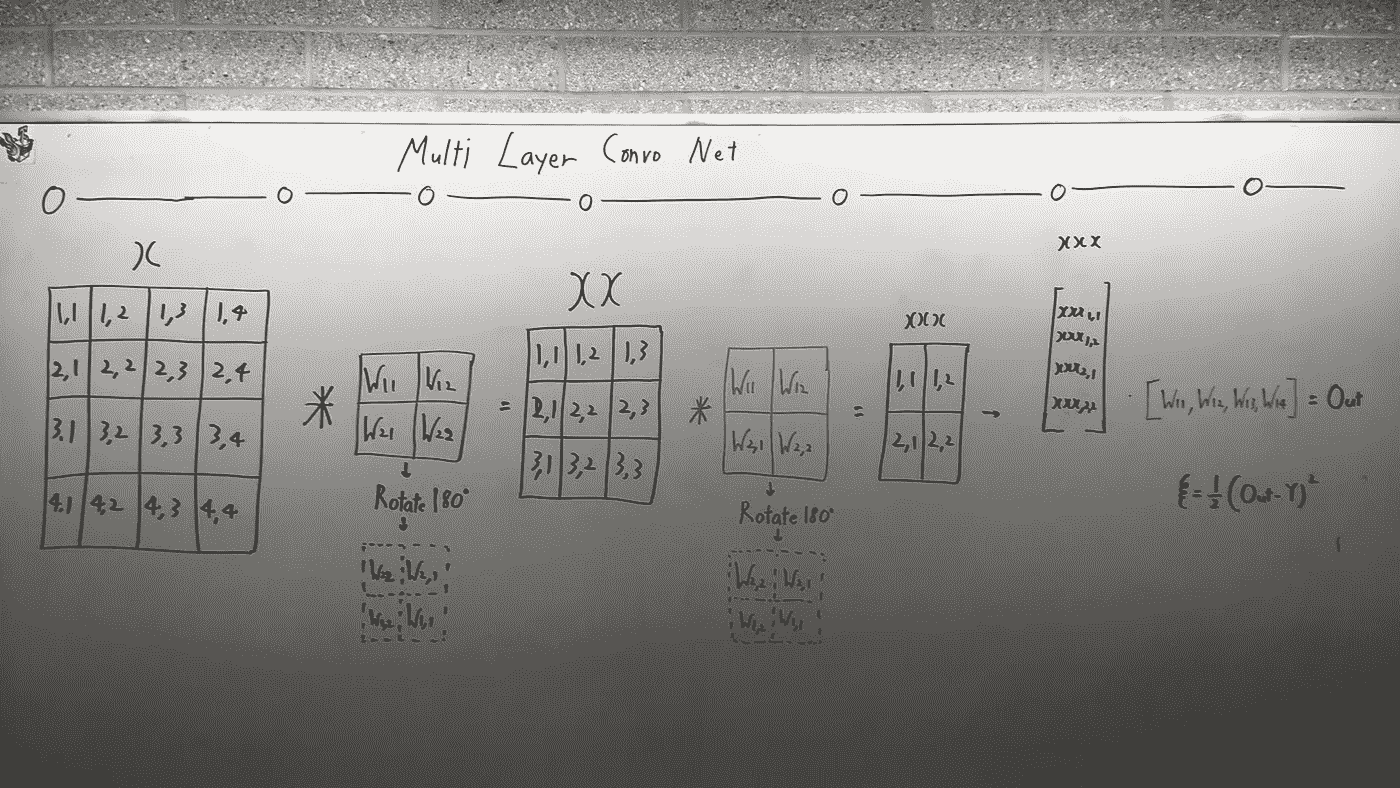 Multi Layer Convo Net
X
1,1 1,2 1,3 1,4
2,1 2,2 2,3 2,4
3,1 3,2 3,3 3,4
4,1 4,2 4,3 4,4
*
W11 W12
W21 W22
↓
Rotate 180°
↓
W22 W2,1
W1,2 W1,1
=
XX
1,1 1,2 1,3
2,1 2,2 2,3
3,1 3,2 3,3
*
W11 W12
W2,1 W2,2
↓
Rotate 180°
↓
W2,2 W2,1
W1,2 W1,1
=
xxx
1,1 1,2
2,1 2,2
→
xxx
xxx1,1
xxx1,2
xxx2,1
xxx2,2
· [W11, W12, W13, W14] = Out
ξ = 1/2 (Out - Y)²